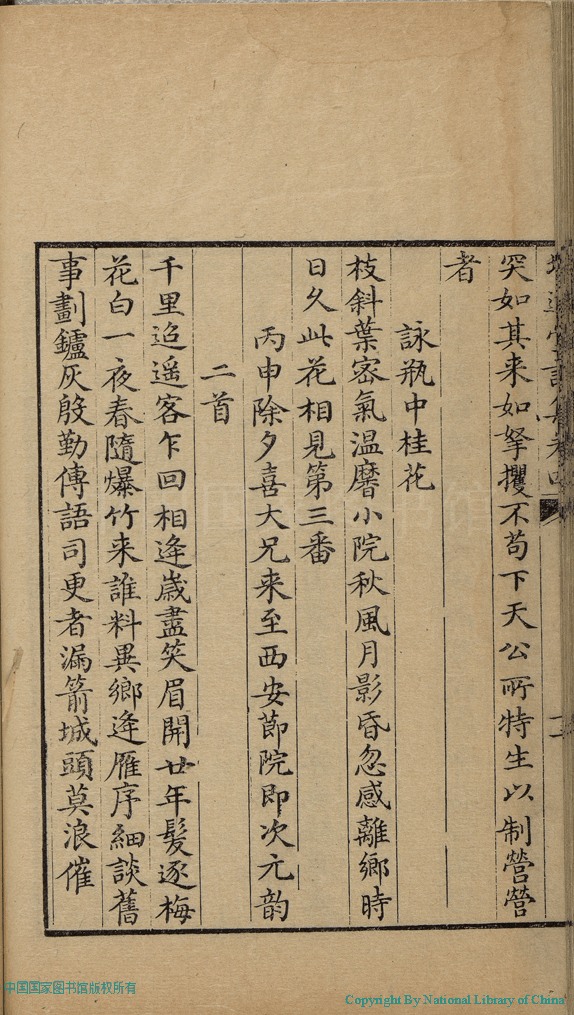 突如其来如拏攫不苟下天公所特生以制營營
者
詠瓶中桂花
枝斜葉密氣温黁小院秋風月影昏忽感離鄉時
日久此花相見第三番
丙申除夕喜大兄来至西安節院即次元韵
二首
千里迢遥客乍回相逢歲盡笑眉開廿年髮逐梅
花白一夜春隨爆竹来誰料異鄉逢雁序細談舊
事劃鑪灰殷勤傳語司更者漏箭城頭莫浪催
中国国家图书馆版权所有
Copyright By National Library of China